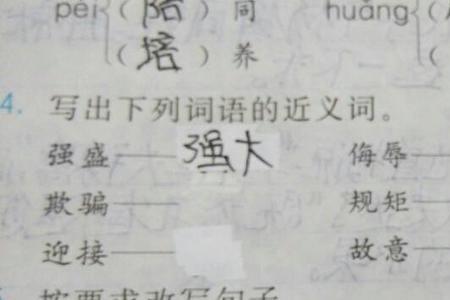 péi{(陪)同 huǎng{(
(培)养 (
4. 写出下列词语的近义词。
强盛——强大 侮辱——
欺骗—— 规矩——
迎接—— 故意——
按要求改写句子